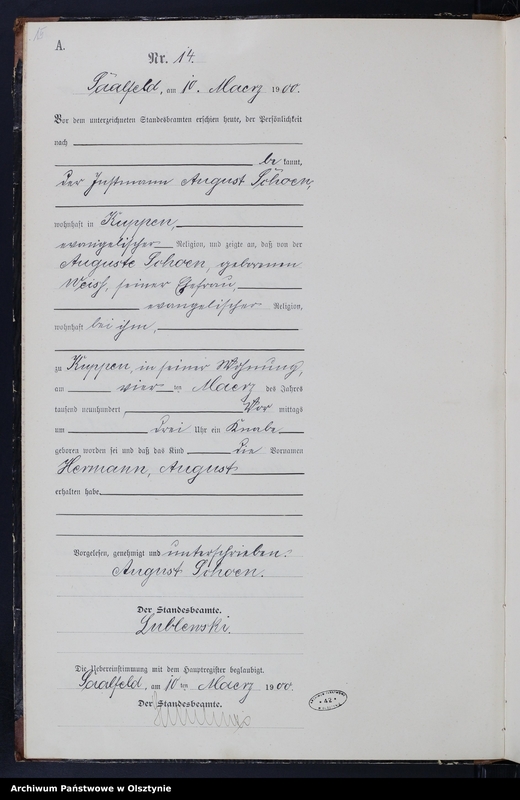 A.
Nr. 14.
Saalfeld, am 10. Maerz 1900.
Vor dem unterzeichneten Standesbeamten erschien heute, der Persönlichkeit
nach
be kannt,
der Instmann August Schoen,
wohnhaft in Kuppen,
evangelischer Religion, und zeigte an, daß von der
Auguste Schoen, geborenen
Weiß, seiner Ehefrau,
evangelischer Religion,
wohnhaft bei ihm,
zu Kuppen, in seiner Wohnung,
am vier ten Maerz des Jahres
tausend neunhundert, Vor mittags
um drei Uhr ein Knabe
geboren worden sei und daß das Kind die Vornamen
Hermann, August
erhalten habe.
Vorgelesen, genehmigt und unterschrieben:
August Schoen.
Der Standesbeamte.
Lublewski.
Die Uebereinstimmung mit dem Hauptregister beglaubigt.
Saalfeld, am 10 ten Maerz 1900.
Der Standesbeamte.
* 42 *
Archiwum Państwowe w Olsztynie